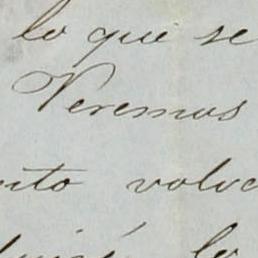 lo que se
Veremos
nto volve
lo